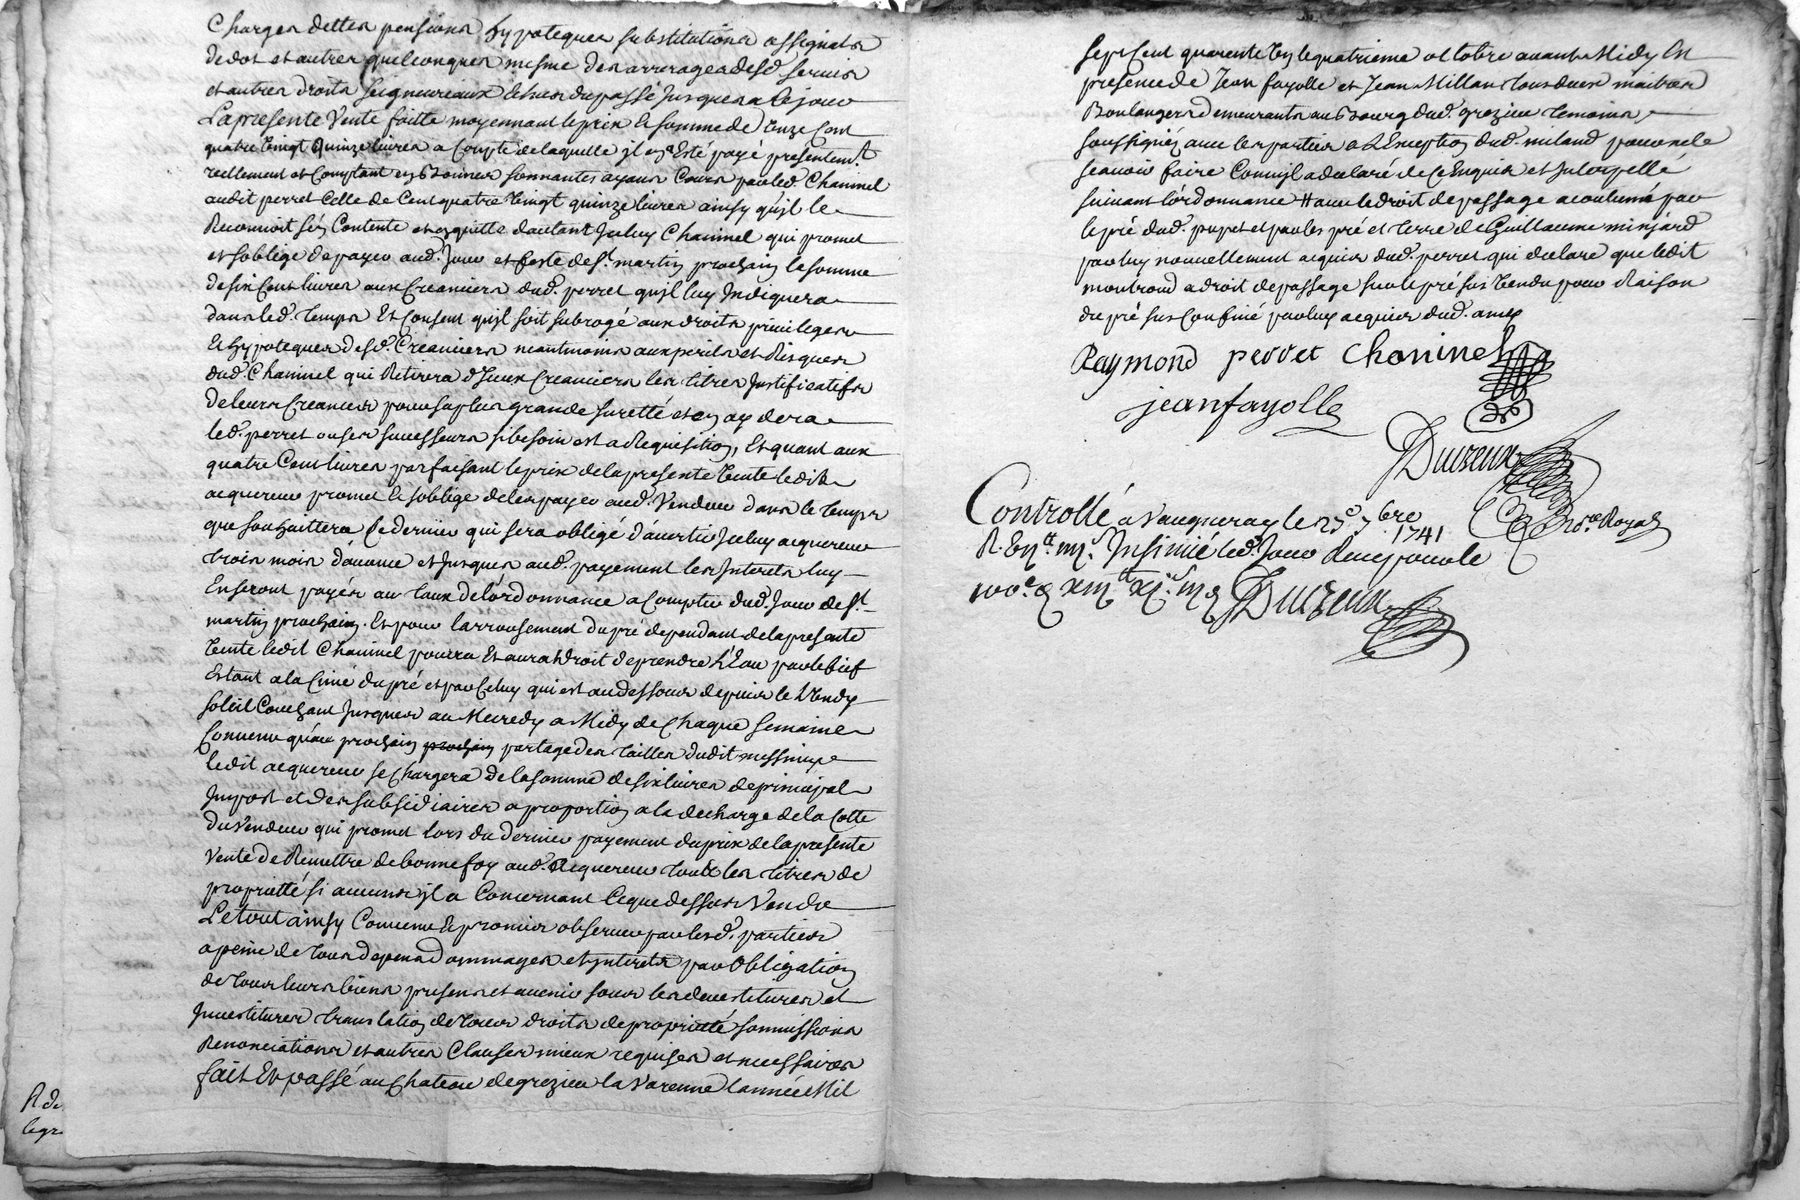 Charges dettes pensions hypoteques substitutions assignats
de dot et autres quelconques mesme des arrerages desd. servis
et autres droits seigneuriaux Echus du passé Jusques a Cejour
La presente Vente faitte moyennant leprix et somme de onze Cent
quatre Vingt quinze livres a Compte de laquelle jl en a Esté payé presentem.t
reellement et Comptant en Especes sonnantes ayant Cours par led. Chaninel
audit perret Celle de Cent quatre Vingt quinze livres ainsy qu'jl le
Reconnoit s'en Contente et en quitte dautant Jceluy Chaninel qui promet
et soblige de payer aud. Jour et feste de St. martin prochain la somme
de six Cent livres aux Creanciers dud. perret qu'jl luy Indiquera
dans led. temps Et Consent qu'jl soit subrogé aux droits privileges
Et hypoteques desd. Creanciers neantmoins aux perils et Risques
dud. Chaninel qui Retirera d'Jceux Creanciers les titres Justificatifs
de leurs Creances pour sa plus grande suretté et en aydera
led. perret ou ses successeurs si besoin est a Requisition, Et quant aux
quatre Cent livres parfaisant le prix de la presente Vente ledit
acquereur promet Et soblige de les payer aud. Vendeur dans le temps
que souhaittera Ce dernier qui sera obligé d'avertir Jceluy acquereur
trois mois d'avance et Jusques aud. payement les Interets luy
En seront payés au taux de l'ordonnance a Compter dud. Jour de St.
martin prochain. Et pour larrousement du pré dependant de la presente
Vente ledit Chaninel pourra Et aura droit de prendre L'Eau par le bief
Estant a la Cime du pré et par Celuy qui est au dessous depuis le Vendy
soleil Couchant Jusques au Mecredy a Midy de Chaque semaine
Convenu qu'au prochain prochain partage des tailles dudit messimy
ledit acquereur se Chargera de la somme de six livres de principal
Impost et des subsidiaires a proportion a la decharge de la Cotte
du Vendeur qui promet lors du dernier payement du prix de la presente
Vente de Remettre de bonne foy aud. acquereur tous les titres de
proprietté si aucuns jl a Concernant Ce que dessus Vendu
Le tout ainsy Convenu Et promis observer par lesd. parties
a peine de tous depens dommages et interets par obligation
de tous leurs biens presens et avenir sous les devestitures et
Investitures translation de tous droits de proprietté sommissions
Renonciations et autres Clauses mieux requises et necessaires
fait Et passé au Chateau de grezieu la Varenne lannée Mil
sept Cent quarente Un le quatrieme octobre avant Midy En
presence de Jean fayolle et Jean Millan tous deux maitres
Boulangers demeurants au Bourg dud. grezieu temoins
soussignéz avec les parties a L'Exception dud. miland pour ne le
scavoir faire Comm'jl a declaré de Ce Enquis et Interpellé
suivant l'ordonnance # avec le droit de passage acoutumé par
le pré dud. et par les pré et terre de Guillaume minjard
par luy nouvellement acquis dud. perret qui declare que ledit
montrond a droit de passage sur le pré sus Vendu pour Raison
du pré sus Confiné par luy acquis dud.
Raymond perret Chaninel
jeanfayolle
Duizeux
Controllé a Vaugneray le 7.bre 1741
No.re Royal
R. Insinué led. Jour
Duizeux
R de
legr